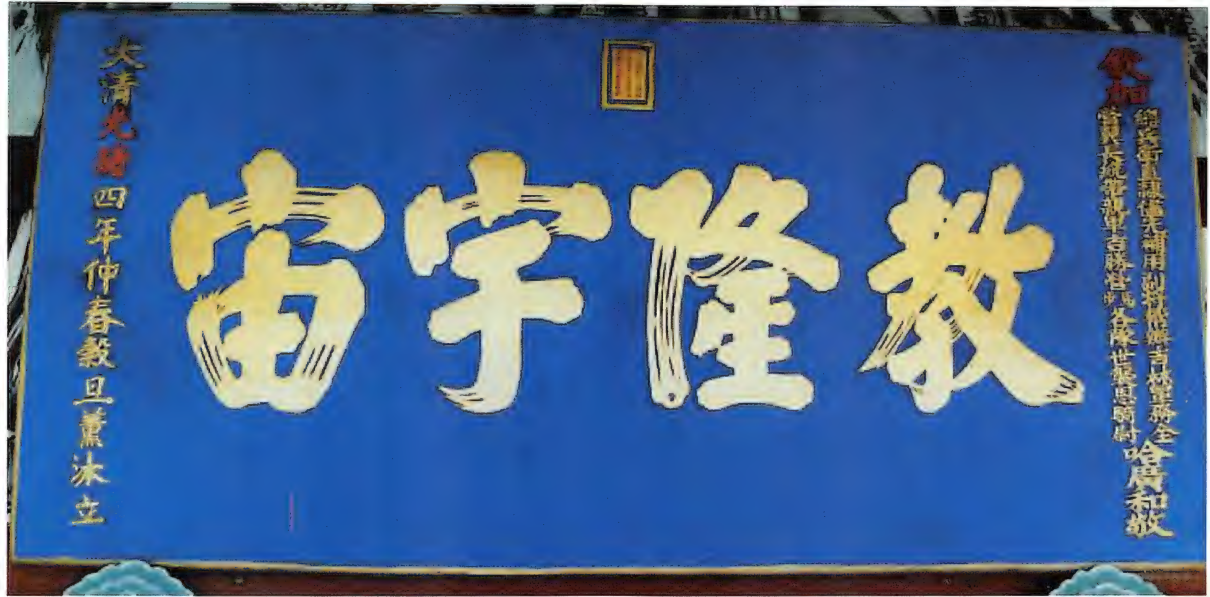 欽加
總兵銜直隸儘先補用副將幫辦吉林軍務全
營翼長統帶軍吉勝營馬步各隊世襲恩騎尉
哈廣和敬
教隆宇宙
大清光緒四年仲春穀旦薰沐立